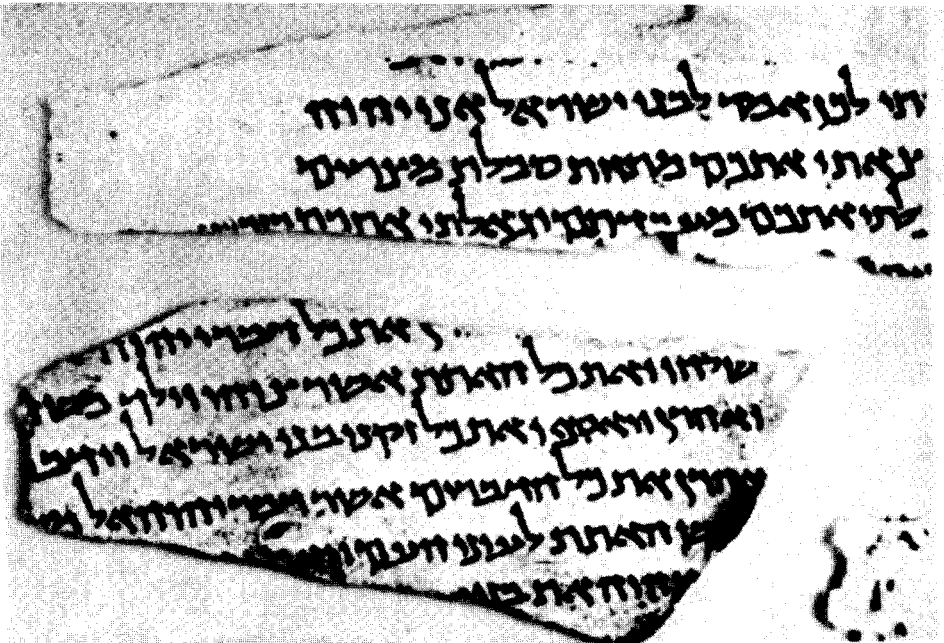 תי לכן אמר לבני ישראל אני יהוה
צאתי אתכם מתחת סבלת מצרים
לתי אתכם מעבדתם וגאלתי אתכם
ן את כל דברי יהוה
שלחו ואת כל האתת אשר צוהו וילך משה
ואהרן ויאספו את כל זקני בני ישראל וידבר
אהרן את כל הדברים אשר דבר יהוה אל מש
האתת לעיני העם
יהוה את בני